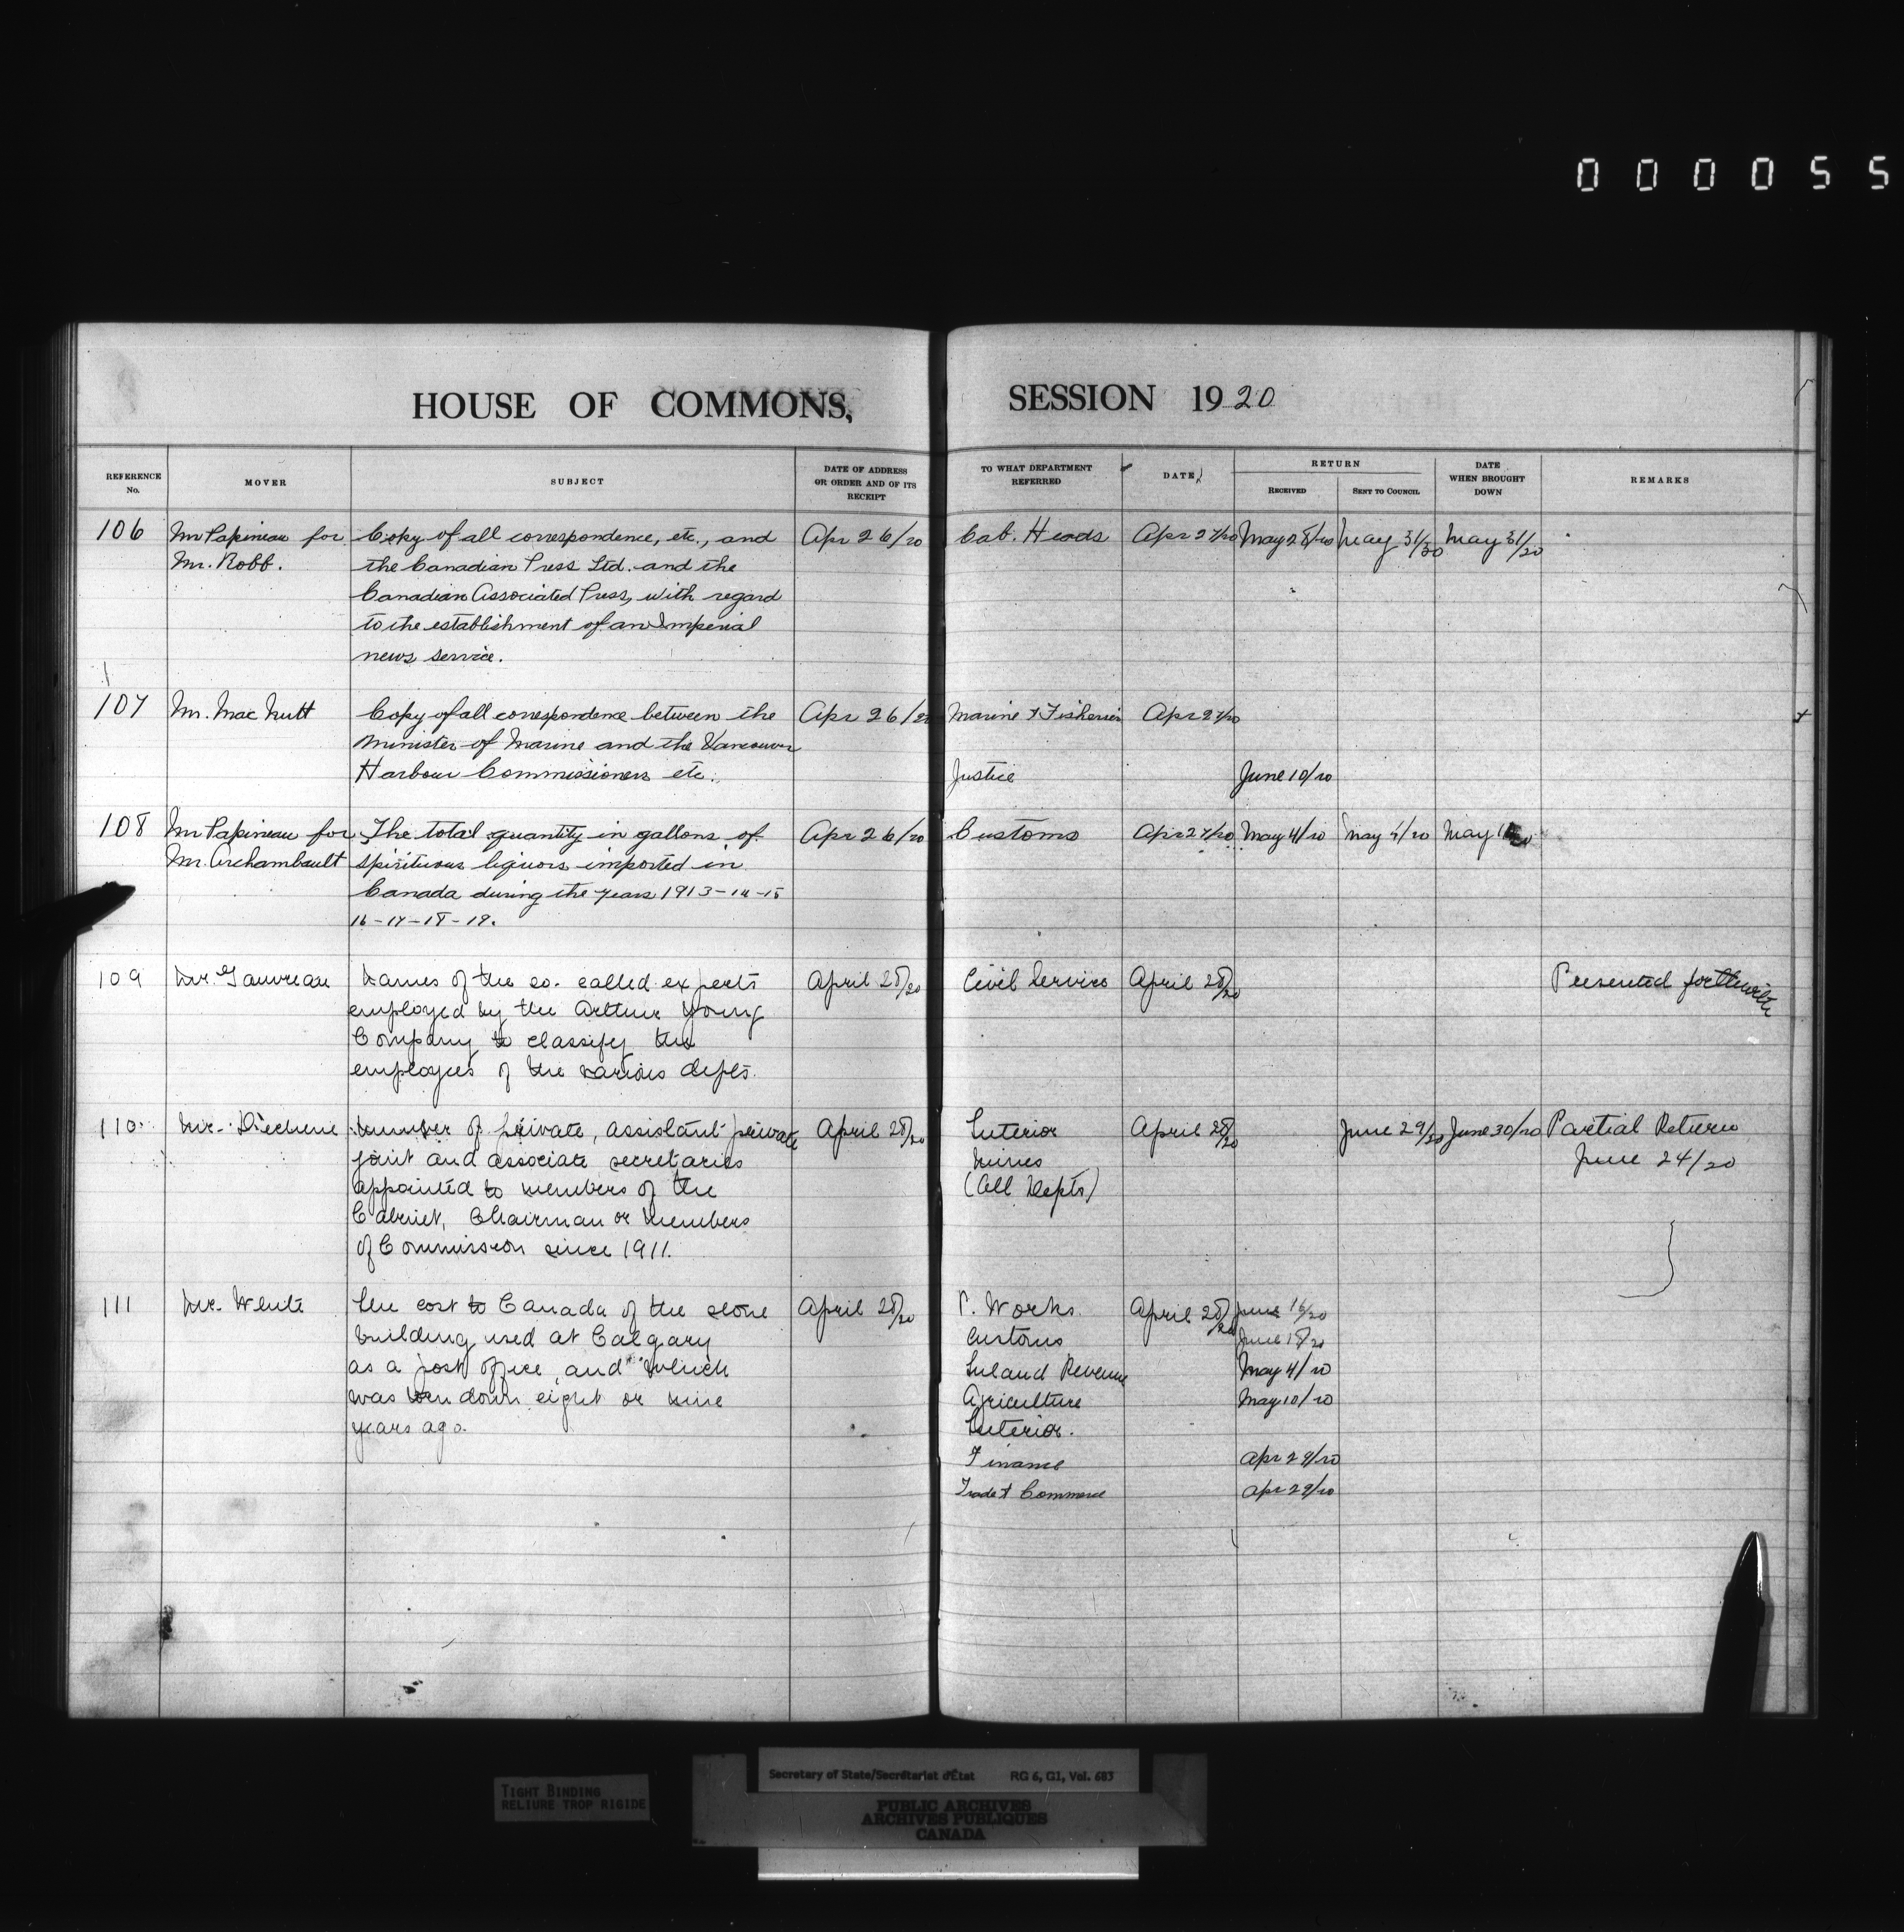 000055
HOUSE OF COMMONS, SESSION 1920
REFERENCE No. MOVER SUBJECT DATE OF ADDRESS OR ORDER AND OF ITS RECEIPT TO WHAT DEPARTMENT REFERRED DATE RETURN RECEIVED SENT TO COUNCIL DATE WHEN BROUGHT DOWN REMARKS
106 Mr Papineau for Copy of all correspondence, etc., and Apr 26/20 Cab. Heads Apr 27/20 May 28/20 May 31/20 May 31/20
Mr. Robb. the Canadian Press Ltd. and the
Canadian Associated Press, with regard
to the establishment of an Imperial
news service.
107 Mr. MacNutt Copy of all correspondence between the Apr 26/20 Marine & Fisheries Apr 27/20
Minister of Marine and the Vancouver
Harbour Commissioners etc. Justice June 10/20
108 Mr Papineau for The total quantity in gallons of Apr 26/20 Customs Apr 27/20 May 4/20 May 4/20 May
Mr. Archambault spirituous liquors imported in
Canada during the years 1913-14-15
16-17-18-19.
109 Mr. Gauvreau Names of the so-called experts April 28/20 Civil Service April 28/20 Presented forthwith
employed by the Arthur Young
Company to classify the
employees of the various depts.
110 Mr. Diechene Number of private, assistant private April 28/20 Interior April 28/20 June 29/20 June 30/20 Partial Return
joint and associate secretaries Mines June 24/20
appointed to members of the (All Depts)
Cabinet, Chairman or members
of Commission since 1911.
111 Mr. White The cost to Canada of the stone April 28/20 P. Works. April 28/20 June 16/20
building used at Calgary Customs June 18/20
as a post office, and which Inland Revenue May 4/20
was torn down eight or nine Agriculture May 10/20
years ago. Interior.
Finance Apr 29/20
Trade & Commerce Apr 29/20
TIGHT BINDING
RELIURE TROP RIGIDE
Secretary of State/Secrétariat d'État RG 6, G1, Vol. 683
PUBLIC ARCHIVES
ARCHIVES PUBLIQUES
CANADA